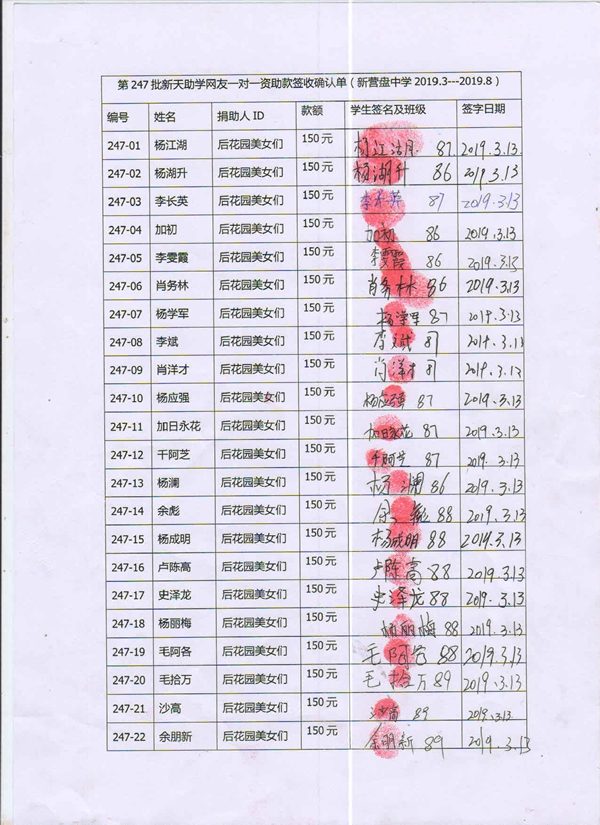 第 247 批新天助学网友一对一资助款签收确认单（新营盘中学 2019.3---2019.8）
编号 姓名 捐助人 ID 款额 学生签名及班级 签字日期
247-01 杨江湖 后花园美女们 150 元 杨江湖 87 2019.3.13
247-02 杨湖升 后花园美女们 150 元 杨湖升 86 2019.3.13
247-03 李长英 后花园美女们 150 元 李长英 87 2019.3.13
247-04 加初 后花园美女们 150 元 加初 86 2019.3.13
247-05 李雯霞 后花园美女们 150 元 李雯霞 86 2019.3.13
247-06 肖务林 后花园美女们 150 元 肖务林 86 2019.3.13
247-07 杨学军 后花园美女们 150 元 杨学军 87 2019.3.13
247-08 李斌 后花园美女们 150 元 李斌 87 2019.3.13
247-09 肖洋才 后花园美女们 150 元 肖洋才 87 2019.3.13
247-10 杨应强 后花园美女们 150 元 杨应强 87 2019.3.13
247-11 加日永花 后花园美女们 150 元 加日永花 87 2019.3.13
247-12 千阿芝 后花园美女们 150 元 千阿芝 87 2019.3.13
247-13 杨澜 后花园美女们 150 元 杨澜 86 2019.3.13
247-14 余彪 后花园美女们 150 元 余彪 88 2019.3.13
247-15 杨成明 后花园美女们 150 元 杨成明 88 2019.3.13
247-16 卢陈高 后花园美女们 150 元 卢陈高 88 2019.3.13
247-17 史泽龙 后花园美女们 150 元 史泽龙 88 2019.3.13
247-18 杨丽梅 后花园美女们 150 元 杨丽梅 88 2019.3.13
247-19 毛阿各 后花园美女们 150 元 毛阿各 88 2019.3.13
247-20 毛拾万 后花园美女们 150 元 毛拾万 89 2019.3.13
247-21 沙高 后花园美女们 150 元 沙高 89 2019.3.13
247-22 余朋新 后花园美女们 150 元 余朋新 89 2019.3.13